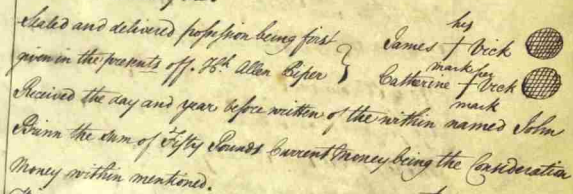 his
Sealed and delivered possession being first } James + Vick
given in the presents off. Allen } mark her
Catherine + Vick
mark
Received the day and year before written of the within named John
the Sum of Fifty Pounds Current Money being the Consideration
Money within mentioned.